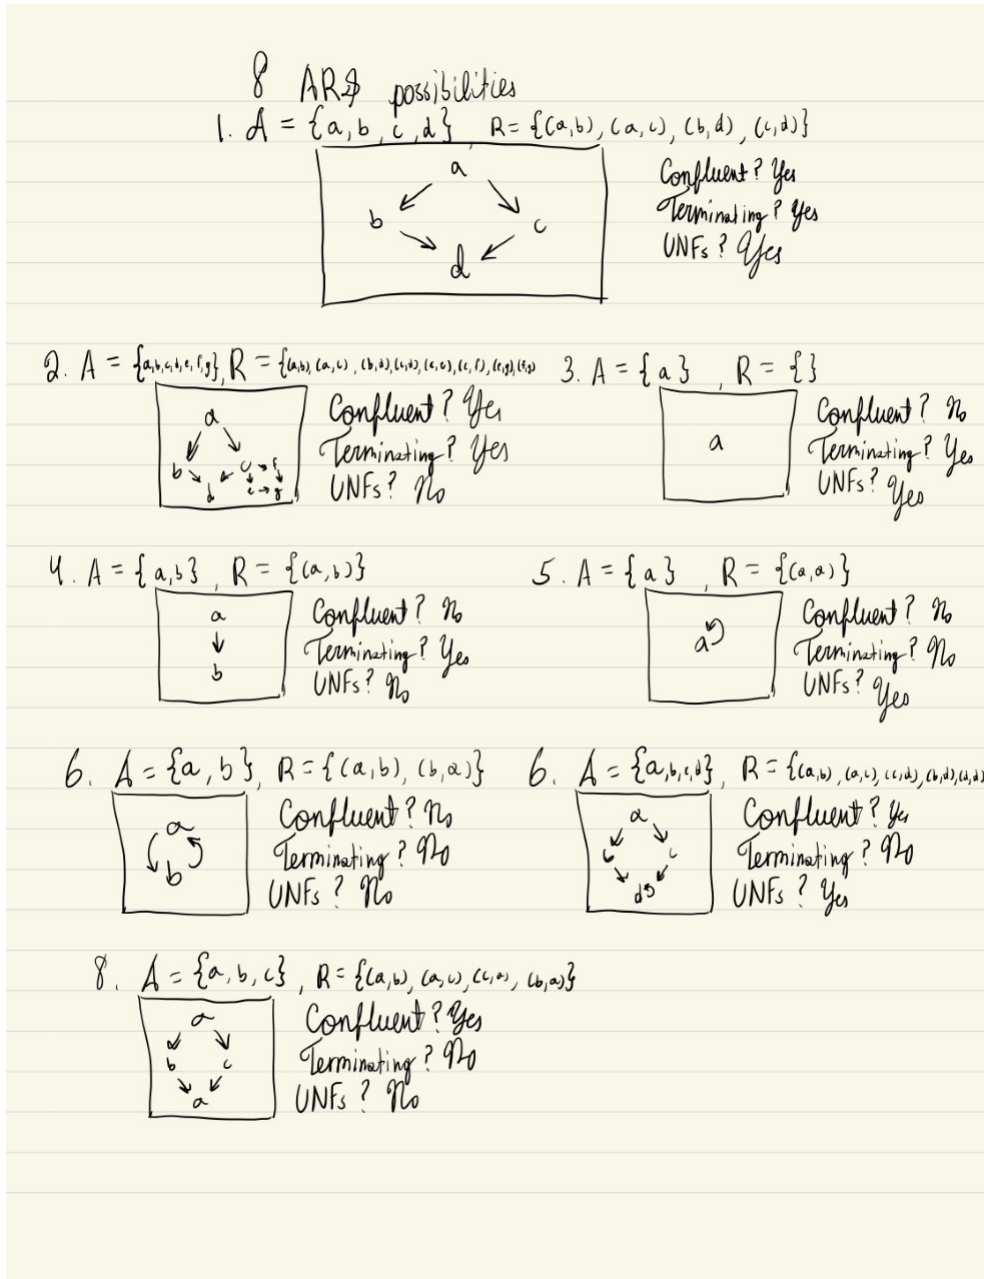 8 ARS possibilities
1. A = {a, b, c, d}, R = {(a,b), (a,c), (b,d), (c,d)}
a
b c
d
Confluent? Yes
Terminating? Yes
UNFs? Yes
2. A = {a,b,c,d,e,f,g}, R = {(a,b), (a,c), (b,d), (c,d), (c,e), (c,f), (e,g), (f,g)
a
b c f
d e g
Confluent? Yes
Terminating? Yes
UNFs? No
3. A = {a}, R = {}
a
Confluent? No
Terminating? Yes
UNFs? Yes
4. A = {a,b}, R = {(a,b)}
a
b
Confluent? No
Terminating? Yes
UNFs? No
5. A = {a}, R = {(a,a)}
a
Confluent? No
Terminating? No
UNFs? Yes
6. A = {a, b}, R = {(a,b), (b,a)}
a
b
Confluent? No
Terminating? No
UNFs? No
6. A = {a,b,c,d}, R = {(a,b), (a,c), (c,d), (b,d), (d,d)
a
c
d
Confluent? Yes
Terminating? No
UNFs? Yes
8. A = {a, b, c}, R = {(a,b), (a,c), (c,a), (b,a)}
a
b c
a
Confluent? Yes
Terminating? No
UNFs? No